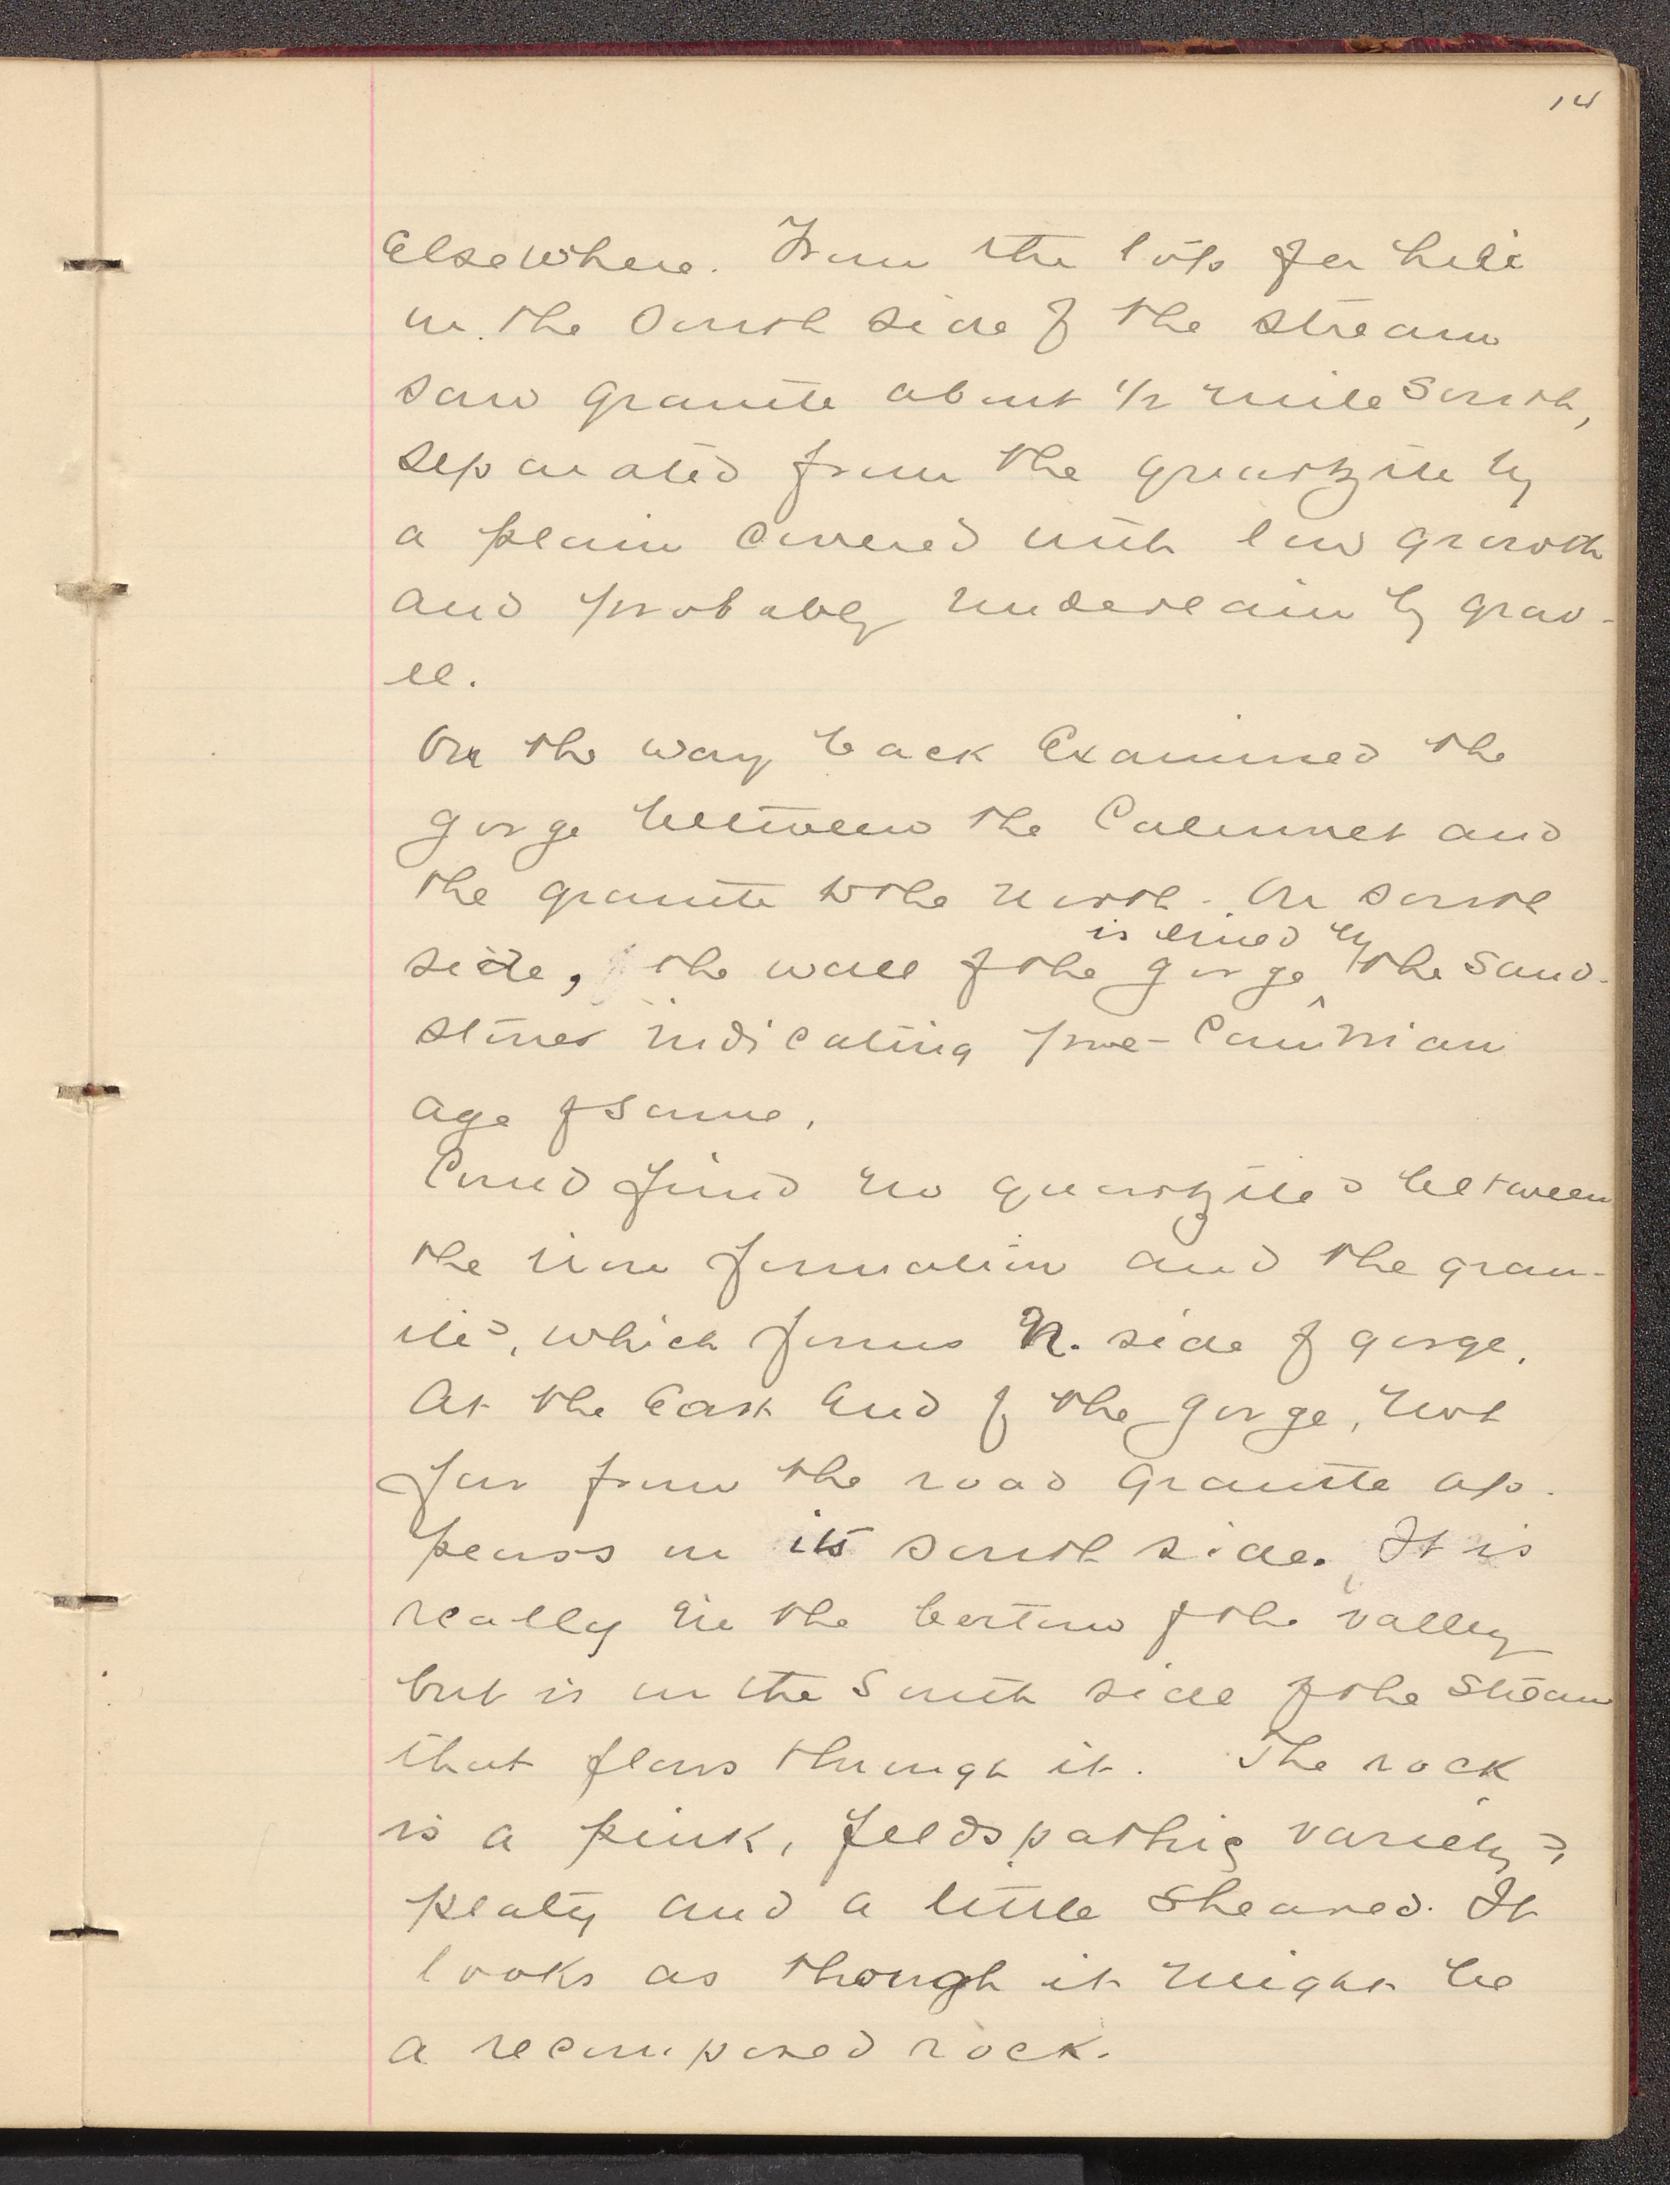 14
elsewhere. From the top of a hill
on the South side of the stream
saw granite about 1/2 mile South,
separated from the quartzite by
a plain covered with low growth
and probably underlain by grav-
el.
On the way back examined the
gorge between the Calumet and
the granite to the north. On south
is lined by
side, the wall of the gorge ^ the Sand-
stones indicating pre-Cambrian
age of same.
Could find no quartzite between
the iron formation and the gran-
ite, which forms N. side of gorge.
At the East End of the gorge, not
far from the road granite ap-
pears on its south side. It is
really in the bottom of the valley
but is on the South side of the stream
that flows through it. The rock
is a pink, feldspathic variety,
platy and a little sheared. It
looks as though it might be
a recomposed rock.